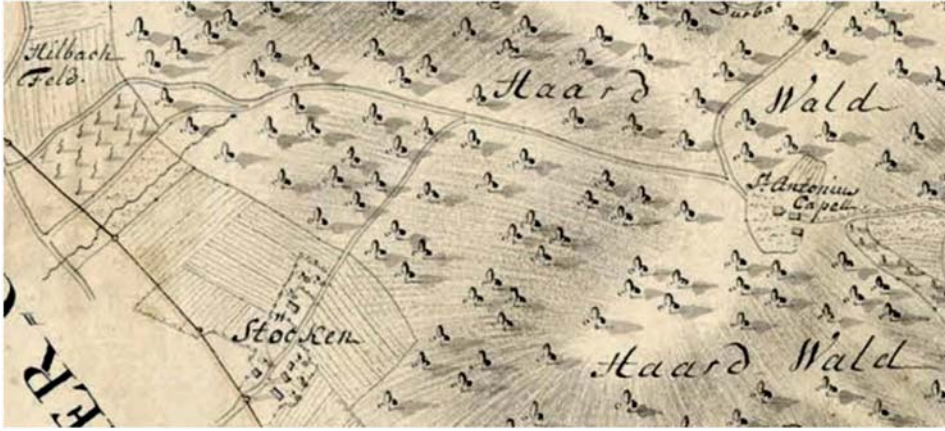 Hilbach
Feld.
Haard Wald
St. Antonius
Capell
Stocken
Haard Wald
ER